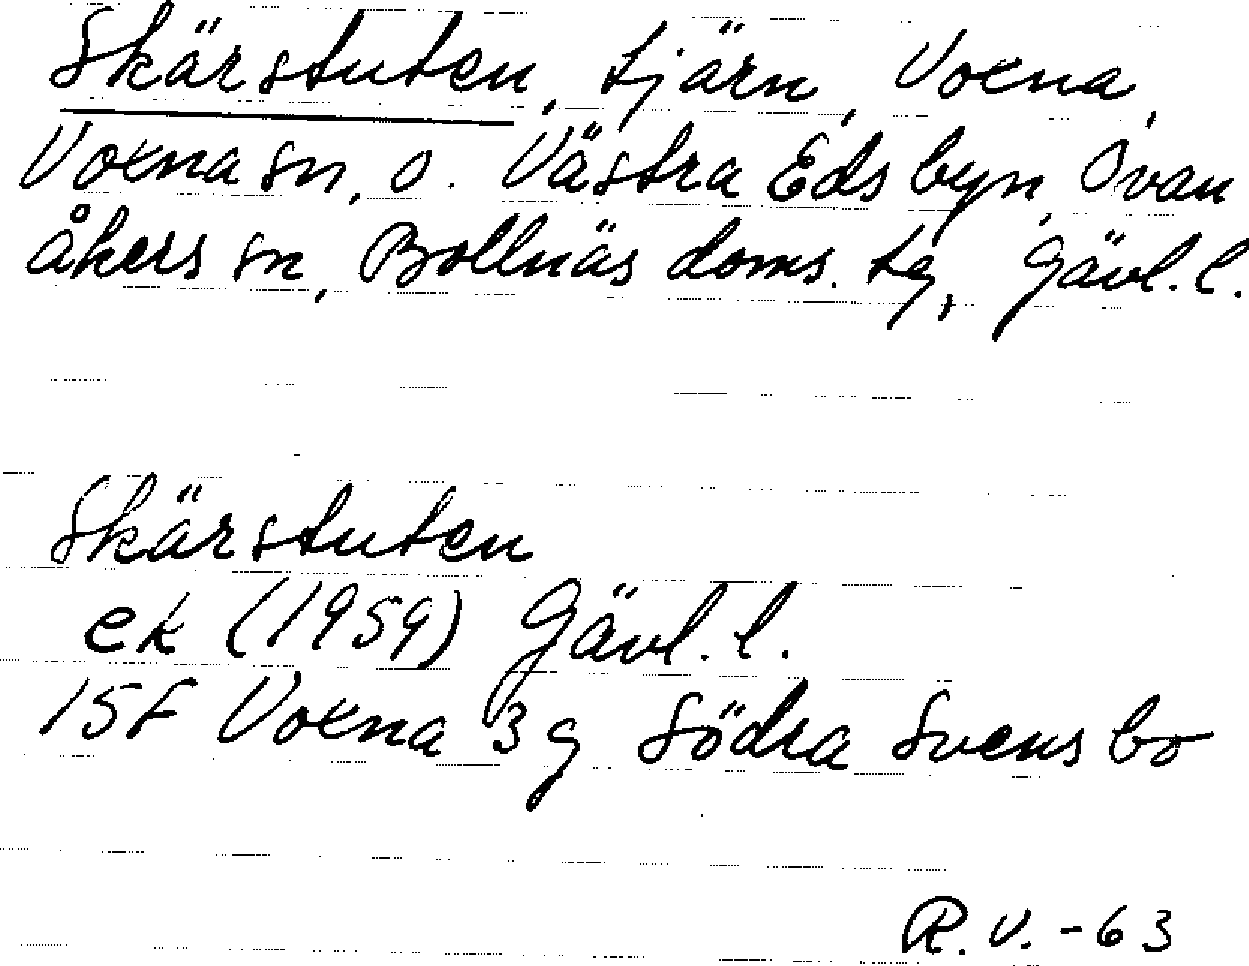 Skärstuten, tjärn, Voxna,
Voxna sn, o. Västra Edsbyn, Ovan
åkers sn, Bollnäs doms. tg, Gävl. l.
Skärstuten
ek (1959) Gävl. l.
15F Voxna 3 g Södra Svensbo
R.V.-63